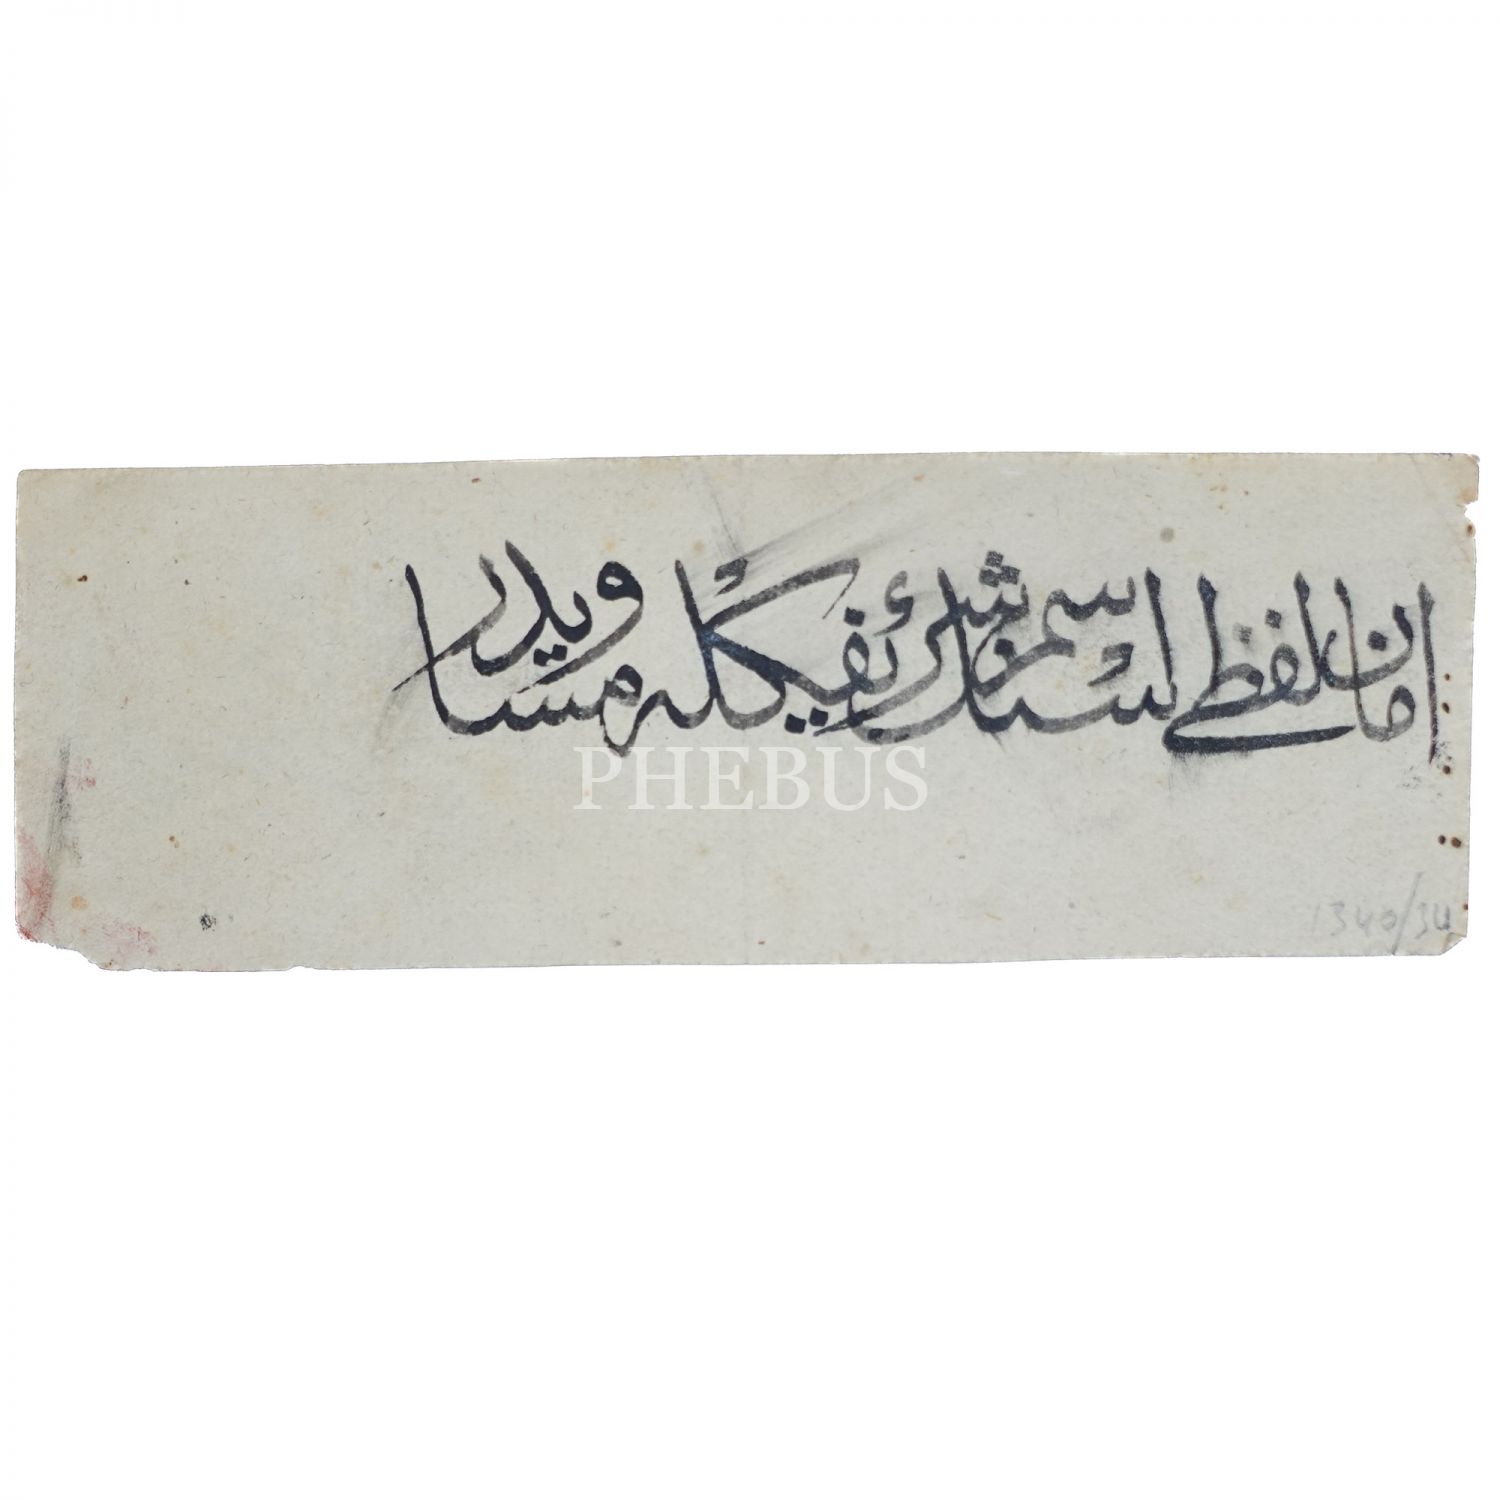 امان لفظی سنك اسم شریفكله مساویدر
PHEBUS
1340/34